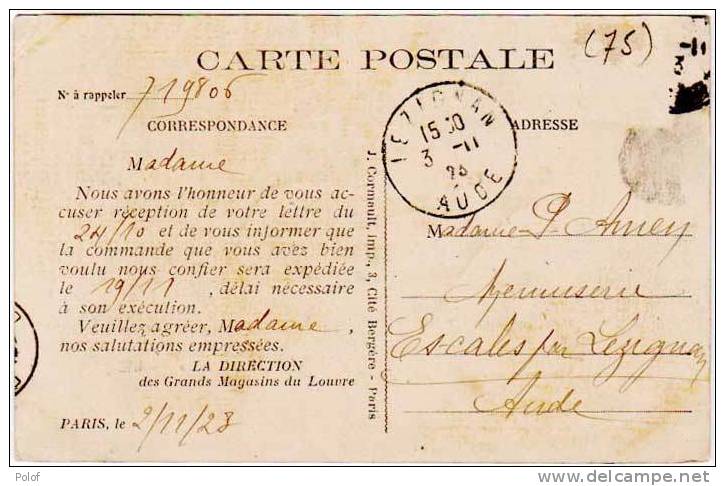 (75)
CARTE POSTALE
N° à rappeler 719806
CORRESPONDANCE
Madame
Nous avons l'honneur de vous ac-
cuser réception de votre lettre du
24/10 et de vous informer que
la commande que vous avez bien
voulu nous confier sera expédiée
le 19/11, délai nécessaire
à son exécution.
Veuillez agréer, Madame,
nos salutations empressées.
LA DIRECTION
des Grands Magasins du Louvre
PARIS, le 2/11/23
J. Cormault, Imp., 3, Cité Bergère - Paris
LEZIGNAN
15 30
3 -11
23
AUDE
ADRESSE
Madame P. Amen
Menuserie
Escales par Lezignan
Aude
-11
3
Polof
delcampe.net